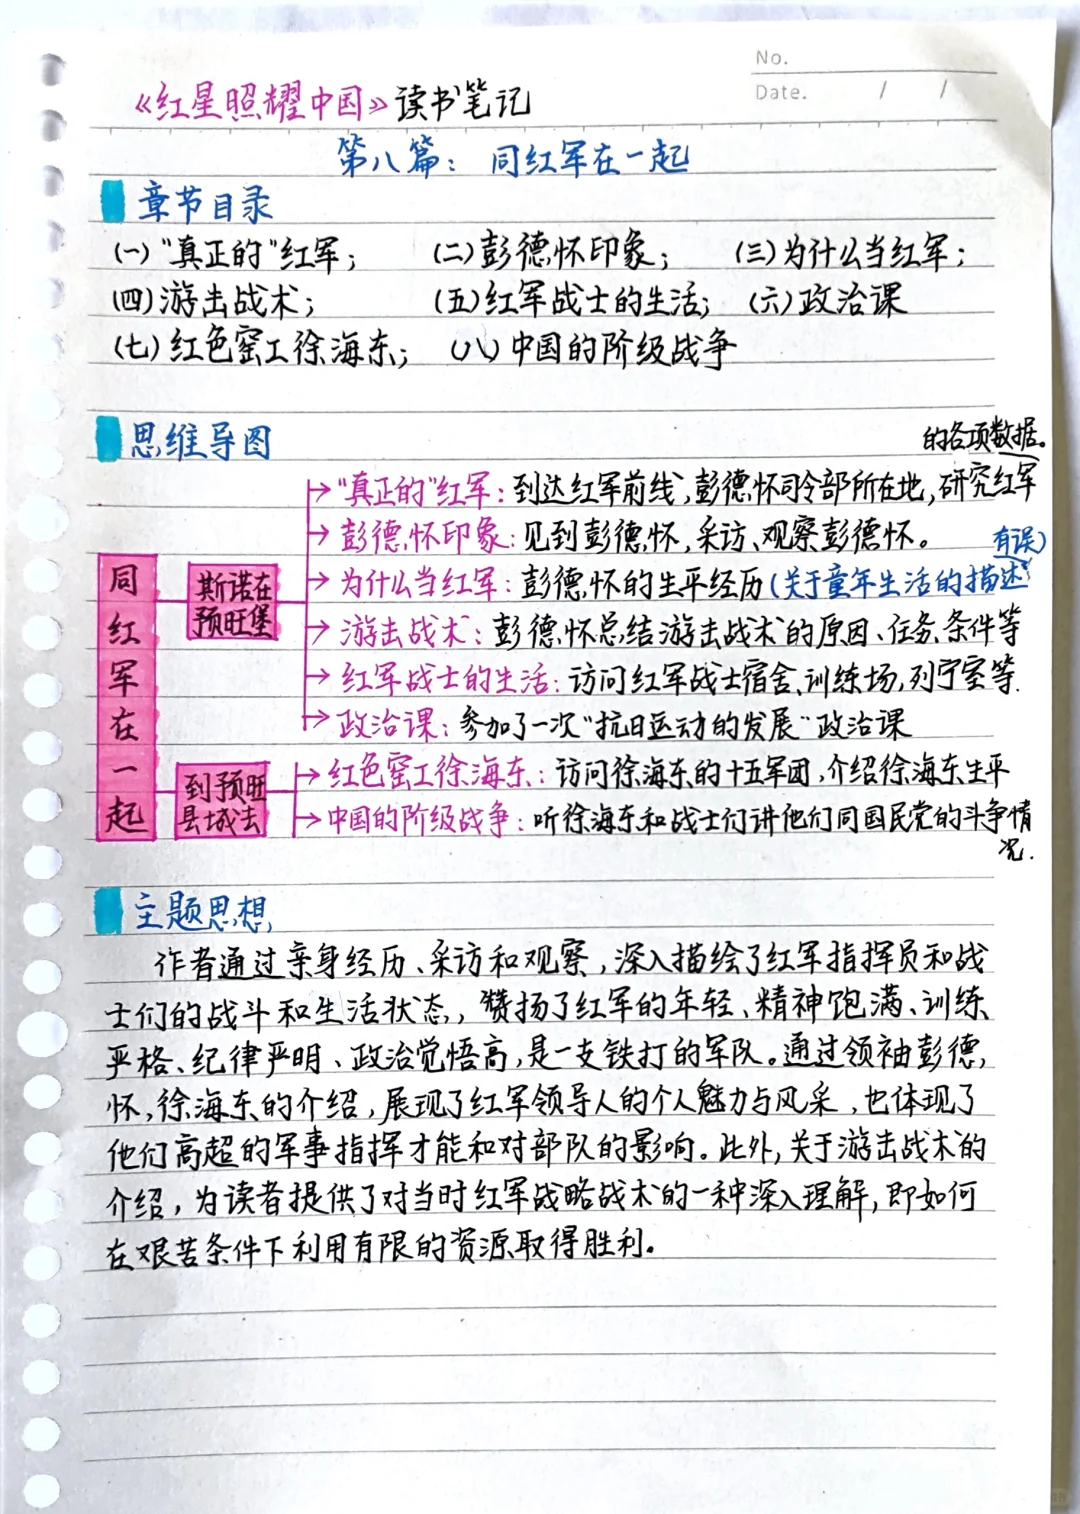 No.
Date. / /
《红星照耀中国》读书笔记
第八篇：同红军在一起
章节目录
(一)"真正的"红军； (二)彭德怀印象； (三)为什么当红军；
(四)游击战术； (五)红军战士的生活； (六)政治课
(七)红色窑工徐海东； (八)中国的阶级战争
思维导图
同红军在一起
斯诺在
预旺堡
"真正的"红军：到达红军前线,彭德怀司令部所在地,研究红军
的各项数据。
彭德怀印象：见到彭德怀,采访、观察彭德怀。
为什么当红军：彭德怀的生平经历(关于童年生活的描述
有误)
游击战术：彭德怀总结游击战术的原因、任务、条件等
红军战士的生活：访问红军战士宿舍、训练场,列宁室等.
政治课：参加了一次"抗日运动的发展"政治课
到预旺
县城去
红色窑工徐海东：访问徐海东的十五军团,介绍徐海东生平
中国的阶级战争：听徐海东和战士们讲他们同国民党的斗争情
况.
主题思想
作者通过亲身经历、采访和观察,深入描绘了红军指挥员和战
士们的战斗和生活状态,赞扬了红军的年轻、精神饱满、训练
严格、纪律严明、政治觉悟高,是一支铁打的军队。通过领袖彭德
怀,徐海东的介绍,展现了红军领导人的个人魅力与风采,也体现了
他们高超的军事指挥才能和对部队的影响。此外,关于游击战术的
介绍,为读者提供了对当时红军战略战术的一种深入理解,即如何
在艰苦条件下利用有限的资源取得胜利。